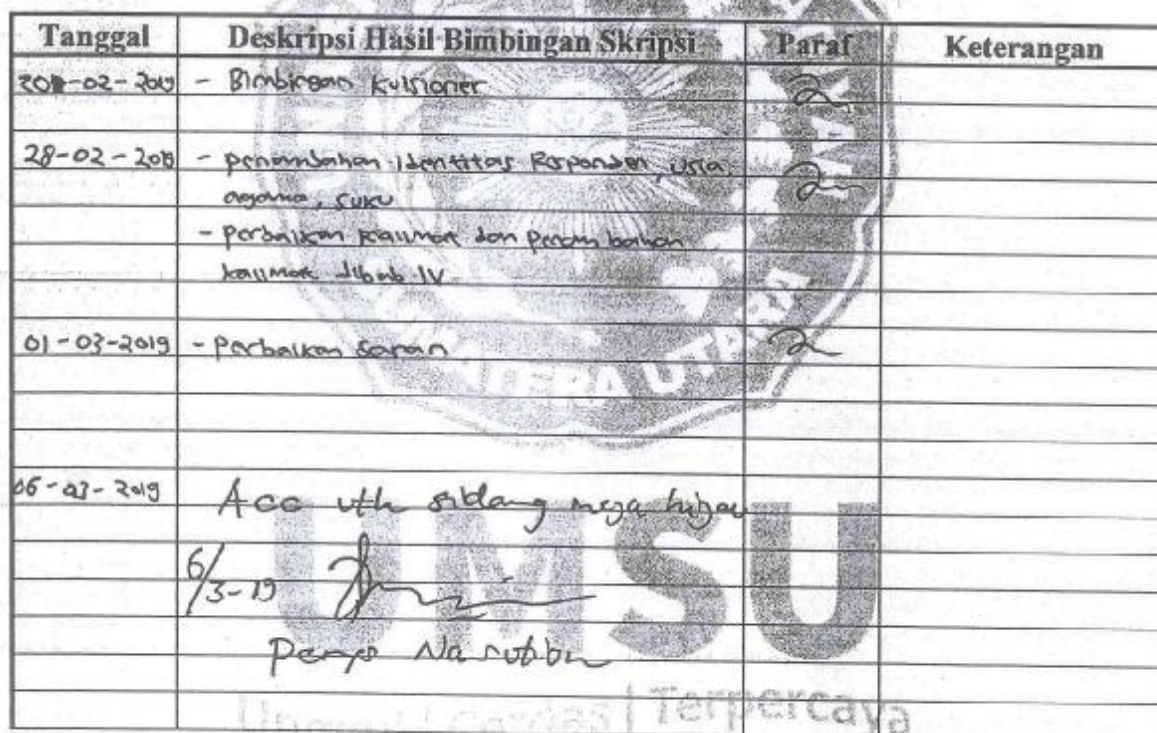 Tanggal Deskripsi Hasil Bimbingan Skripsi Paraf Keterangan
-02-2019 - Bimbingan Kuisioner
28-02-2019 - penambahan Identitas Responden, usia,
agama, suku
- perbaikan kalimat dan penambahan
kalimat dibab IV
01-03-2019 - perbaikan saran
06-03-2019 Acc utk sidang meja hijau
6/3-19
Nasution
SUMATERA UTARA
UMSU
Unggul | Cerdas | Terpercaya